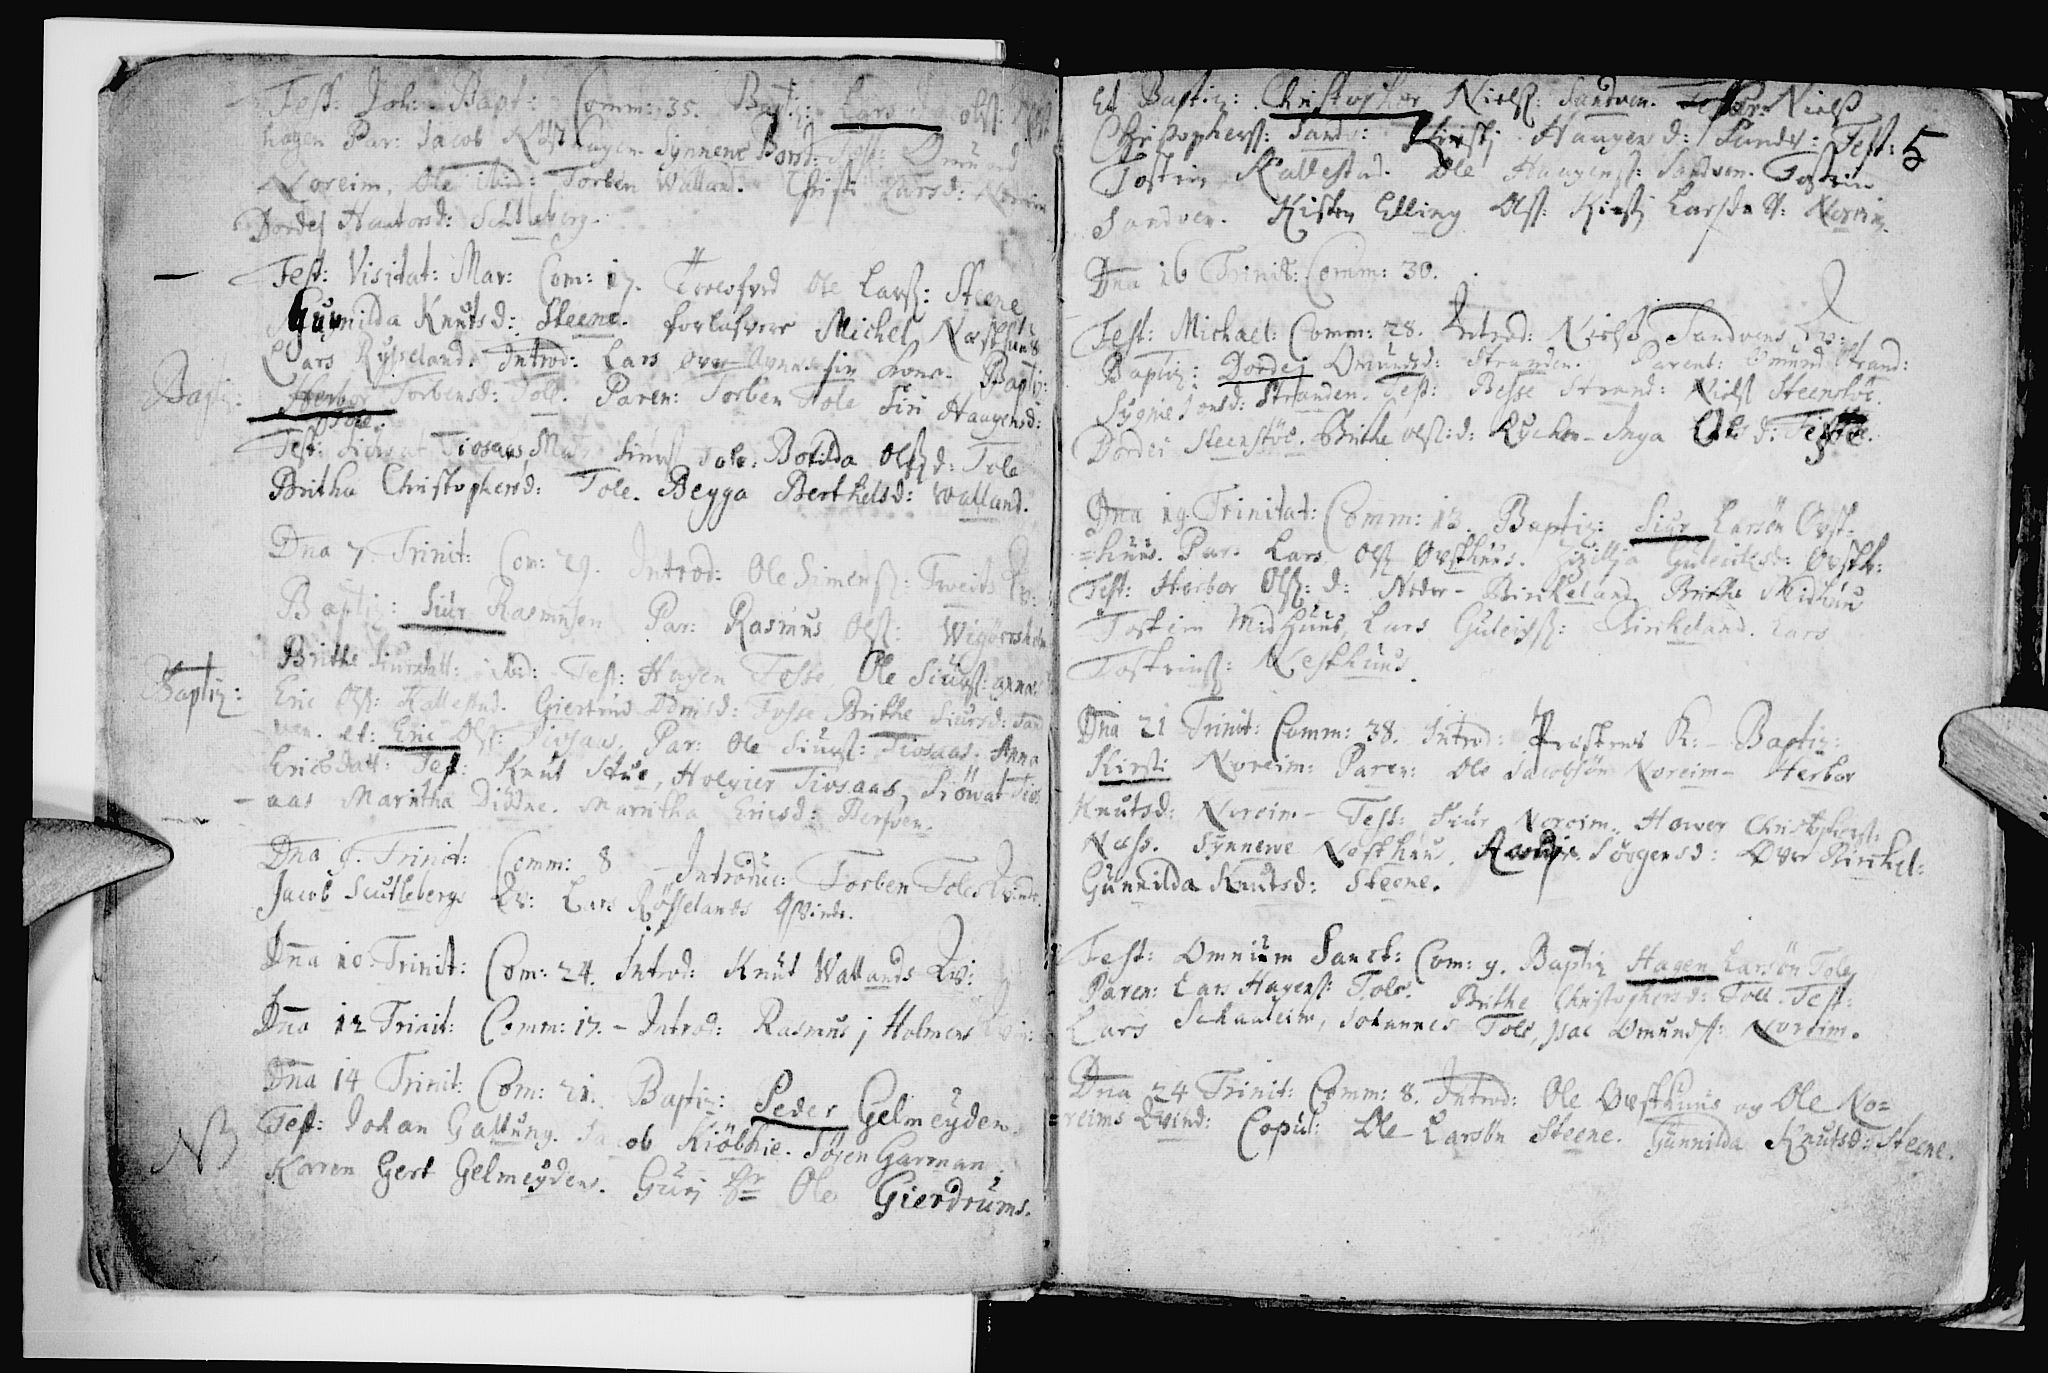 Fest: Joh: Bapt: Comm: 35. Bapt: Lars olss:
hagen Par: Jacob Synnewe Test: Omund
Noreim, Ole ibid: Torben Walland. Christi Larsd: Noreim
Dordej Haavorsd: Schlleberg.
Fest: Visitat: Mar: Com: 17. Troelofved Ole Larss: Steene
Gunnilda Knutsd: Steene. forlofvere Michel Næsthuus
Lars Rysseland. Introd: Lars over kone. Baptiz:
Baptiz: Herbor Torbensd: Tole. Paren: Torben Tole Siri Haagensd:
Tole.
Test: Tiosaas, Siurss Tole. Botilda Olss d: Tole
Britha Christophersd: Tole. Begga Berthelsd: Walland.
Dna 7 Trinit: Com: 29. Introd: Ole Simenss: Tveits Qv:
Baptiz: Siur Rasmusen Par: Rasmus Olss:
Baptiz: Brithe ibid: Test: Hagen Fosse, Ole Siurss:
Eric Olss: Kallestad. Giertrud d: Fosse Brithe Siursd: Sand
ven. et: Eric Olss: Tiosaas. Par: Ole Siurss: Tiosaas. Anna
Ericsdatt: Test: Knut Stue, Holgier Tiosaas, Siowat Tios
aas Maritha Maritha Ericsd: Bersven.
Dna 9. Trinit: Comm: 8 Introduc: Torben Toles Qvinde.
Jacob Scutlebergs Qv: Lars Rösselands Qvinde.
Dna 10. Trinit: Com: 24. Introd: Knut Wallands Qvi:
Dna 12 Trinit: Comm: 17. - Introd: Rasmus j Holmens Qvi:
Dna 14 Trinit: Com: 21. Baptiz: Peder Gelmeyden.
NB Test: Johan Galtung. Jacob Kiöbhie. Sören Garman.
Karen Gert Gelmeydens. Guri Ole Gierdrums.
5
Et Baptiz: Christopher Nielss: Sandven. Par Nielss
Christopherss: Sandv: Kirstj Haagens d: Sandv: Test:
Tostein Kallestad. Ole Haagenss: Sandven. Tostein
Sandven. Kisten Elling Olss: Kirstj Larsda tt: Noreim.
Dna 16 Trinit: Comm: 30.
Fest: Michael: Comm: 28. Introd: Nielss Sandvens Qv:
Baptiz: Dordej Omundsd: Stranden. Parent: Omund Strand:
Sygnie Jonsd: Stranden. Test: Besse Strand: Nielss Steenstöe.
Dordei Steenstöe. Brithe olss: d: Inga d:
Dna 19. Trinitat: Comm: 13. Baptiz: Siur Larsön Øvst-
=huus. Par. Lars Olss Øvsthuus. Guleichsd: Øvsth:
Test: Herbor Olss: d: Neder-Birkeland. Brithe Midhuus
Tostein Midhuus, Lars Guleichss: Birkeland. Lars
Tosteinss: Nesthuus.
Dna 21 Trinit: Comm: 38. Introd: Præstens K: Baptiz:
Kirsti Noreim: Paren: Ole Jacobsön Noreim - Herbor
Knutsd: Noreim - Test: Siur Noreim. Hower Christopherss:
Næss. Synnewe Nesthuus. Jörgensd: Over Birkel:
Gunnilda Knutsd: Steene.
Fest: Omnium Sanct: Com: 9. Baptiz Hagen Larsön Tole
Paren: Lars Hagenss: Tole. Brithe Christophersd: Tole. Test:
Lars Schaateim, Johannes Tole, Isac Omundss: Noreim.
Dna 24 Trinit: Comm: 8. Introd: Ole Øvsthuus og Ole No=
=reims Qvind: Copul: Ole Larsön Steene. Gunnilda Knutsd: Steene.